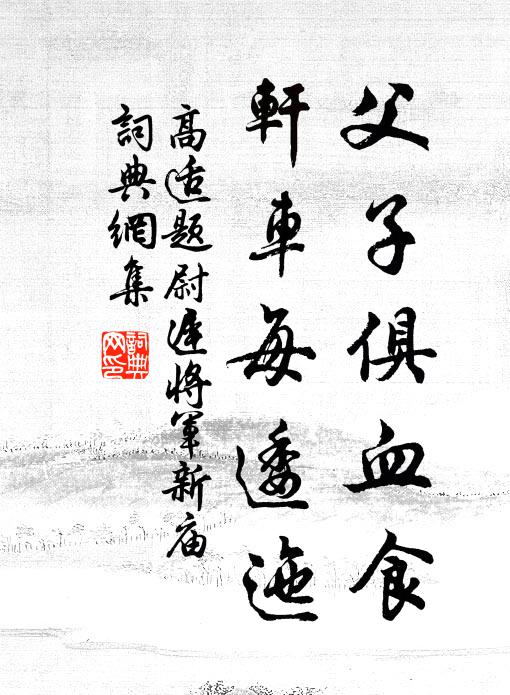 父子俱血食
軒車每逶迤
高适题尉遲将军新庙
詞典網集
詞典
网印